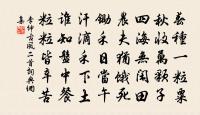 春種一粒粟
秋收萬顆子
四海無閑田
農夫猶餓死
鋤禾日當午
汗滴禾下土
誰知盤中餐
粒粒皆辛苦
李紳古風二首詞典網
集